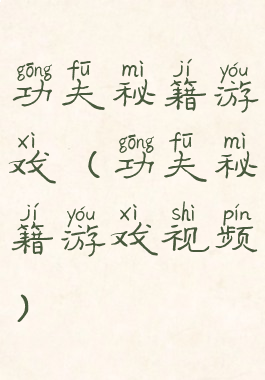 gōng fū mì jí yóu
功夫秘籍游
xì gōng fū mì
戏(功夫秘
jí yóu xì shì pín
籍游戏视频
)